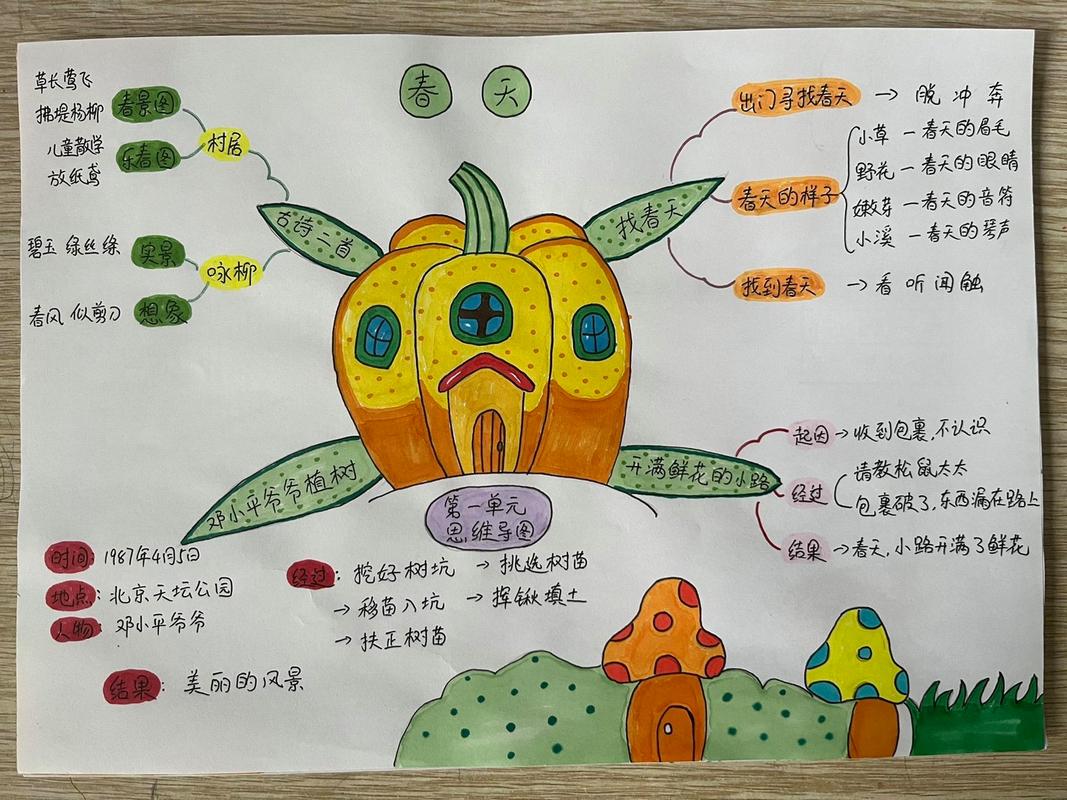 春 天
草长莺飞
拂堤杨柳
春景图
儿童散学
放纸鸢
乐春图
村居
古诗二首
碧玉 绿丝绦
实景
咏柳
春风 似剪刀
想象
找春天
出门寻找春天 → 脱 冲 奔
春天的样子
小草 — 春天的眉毛
野花 — 春天的眼睛
嫩芽 — 春天的音符
小溪 — 春天的琴声
找到春天 → 看 听 闻 触
邓小平爷爷植树
时间: 1987年4月5日
地点: 北京天坛公园
人物: 邓小平爷爷
经过: 挖好树坑 → 挑选树苗
→ 移苗入坑 → 挥锹填土
→ 扶正树苗
结果: 美丽的风景
第一单元
思维导图
开满鲜花的小路
起因 → 收到包裹,不认识
经过
请教松鼠太太
包裹破了,东西漏在路上
结果 → 春天,小路开满了鲜花